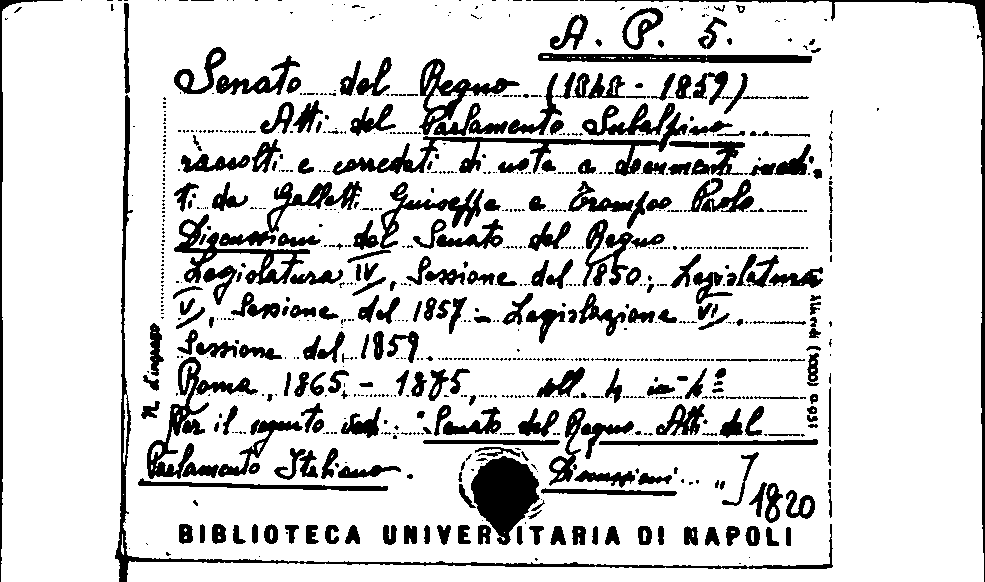 A. P. 5.
Senato del Regno. (1848 - 1859)
Atti del Parlamento Subalpino...
raccolti e corredati di note e documenti inedi-
ti da Galletti Guiseppe e Trompeo Paolo.
Discussioni del Senato del Regno.
Legislatura IV, Sessione del 1850; Legislatura
V, Sessione del 1857 - Legislazione VI.
Sessione del 1859.
Roma, 1865 - 1875, voll. 4 in-4°
Per il seguito vedi: "Senato del Regno. Atti del
Parlamento Italiano. Discussioni... "]
1820
N. d'ingresso
BIBLIOTECA UNIVERSITARIA DI NAPOLI